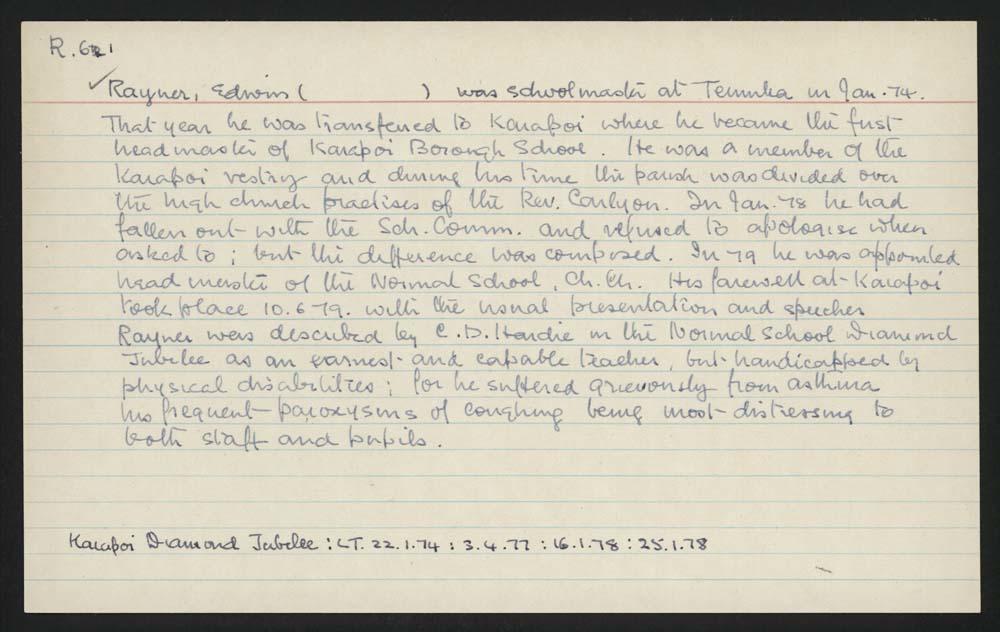 R.621
✓ Rayner, Edwin ( ) was schoolmaster at Temuka in Jan. 74.
That year he was transferred to Kaiapoi where he became the first
headmaster of Kaiapoi Borough School. He was a member of the
Kaiapoi vestry and during his time the parish was divided over
the high church practises of the Rev. Carlyon. In Jan. 78 he had
fallen out with the Sch. Comm. and refused to apologise when
asked to ; but the difference was composed. In 79 he was appointed
head master of the Normal School, Ch. Ch. His farewell at Kaiapoi
took place 10.6.79. with the usual presentation and speeches
Rayner was described by C.D. Hardie in the Normal School Diamond
Jubilee as an earnest and capable teacher, but handicapped by
physical disabilities ; for he suffered grievously from asthma
his frequent paroxysms of coughing being most distressing to
both staff and pupils.
Kaiapoi Diamond Jubilee : LT. 22.1.74 : 3.4.77 : 16.1.78 : 25.1.78